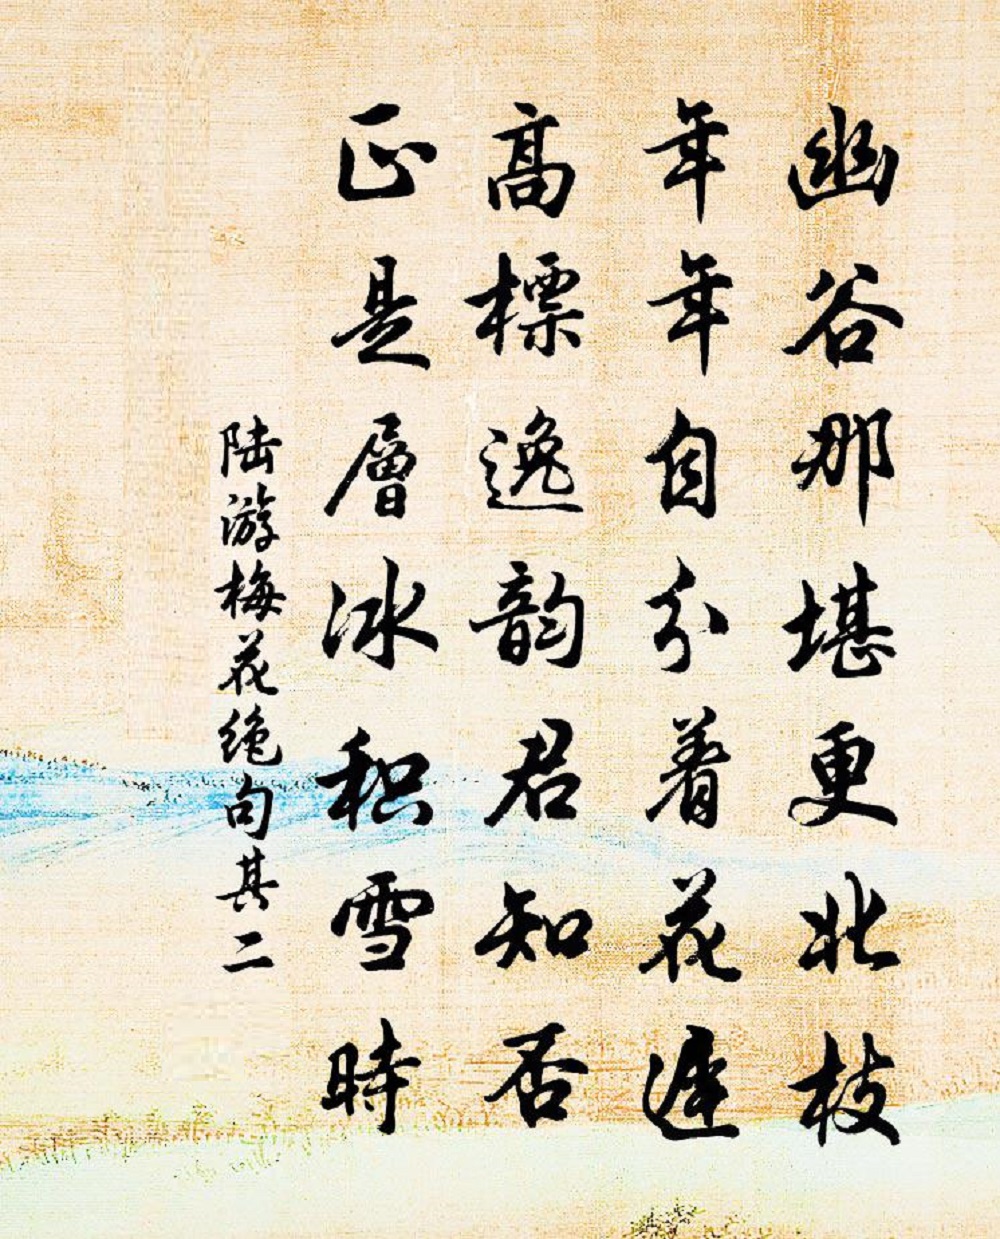 幽谷那堪更北枝
年年自分着花遲
高標逸韵君知否
正是層冰积雪時
陆游梅花绝句其二